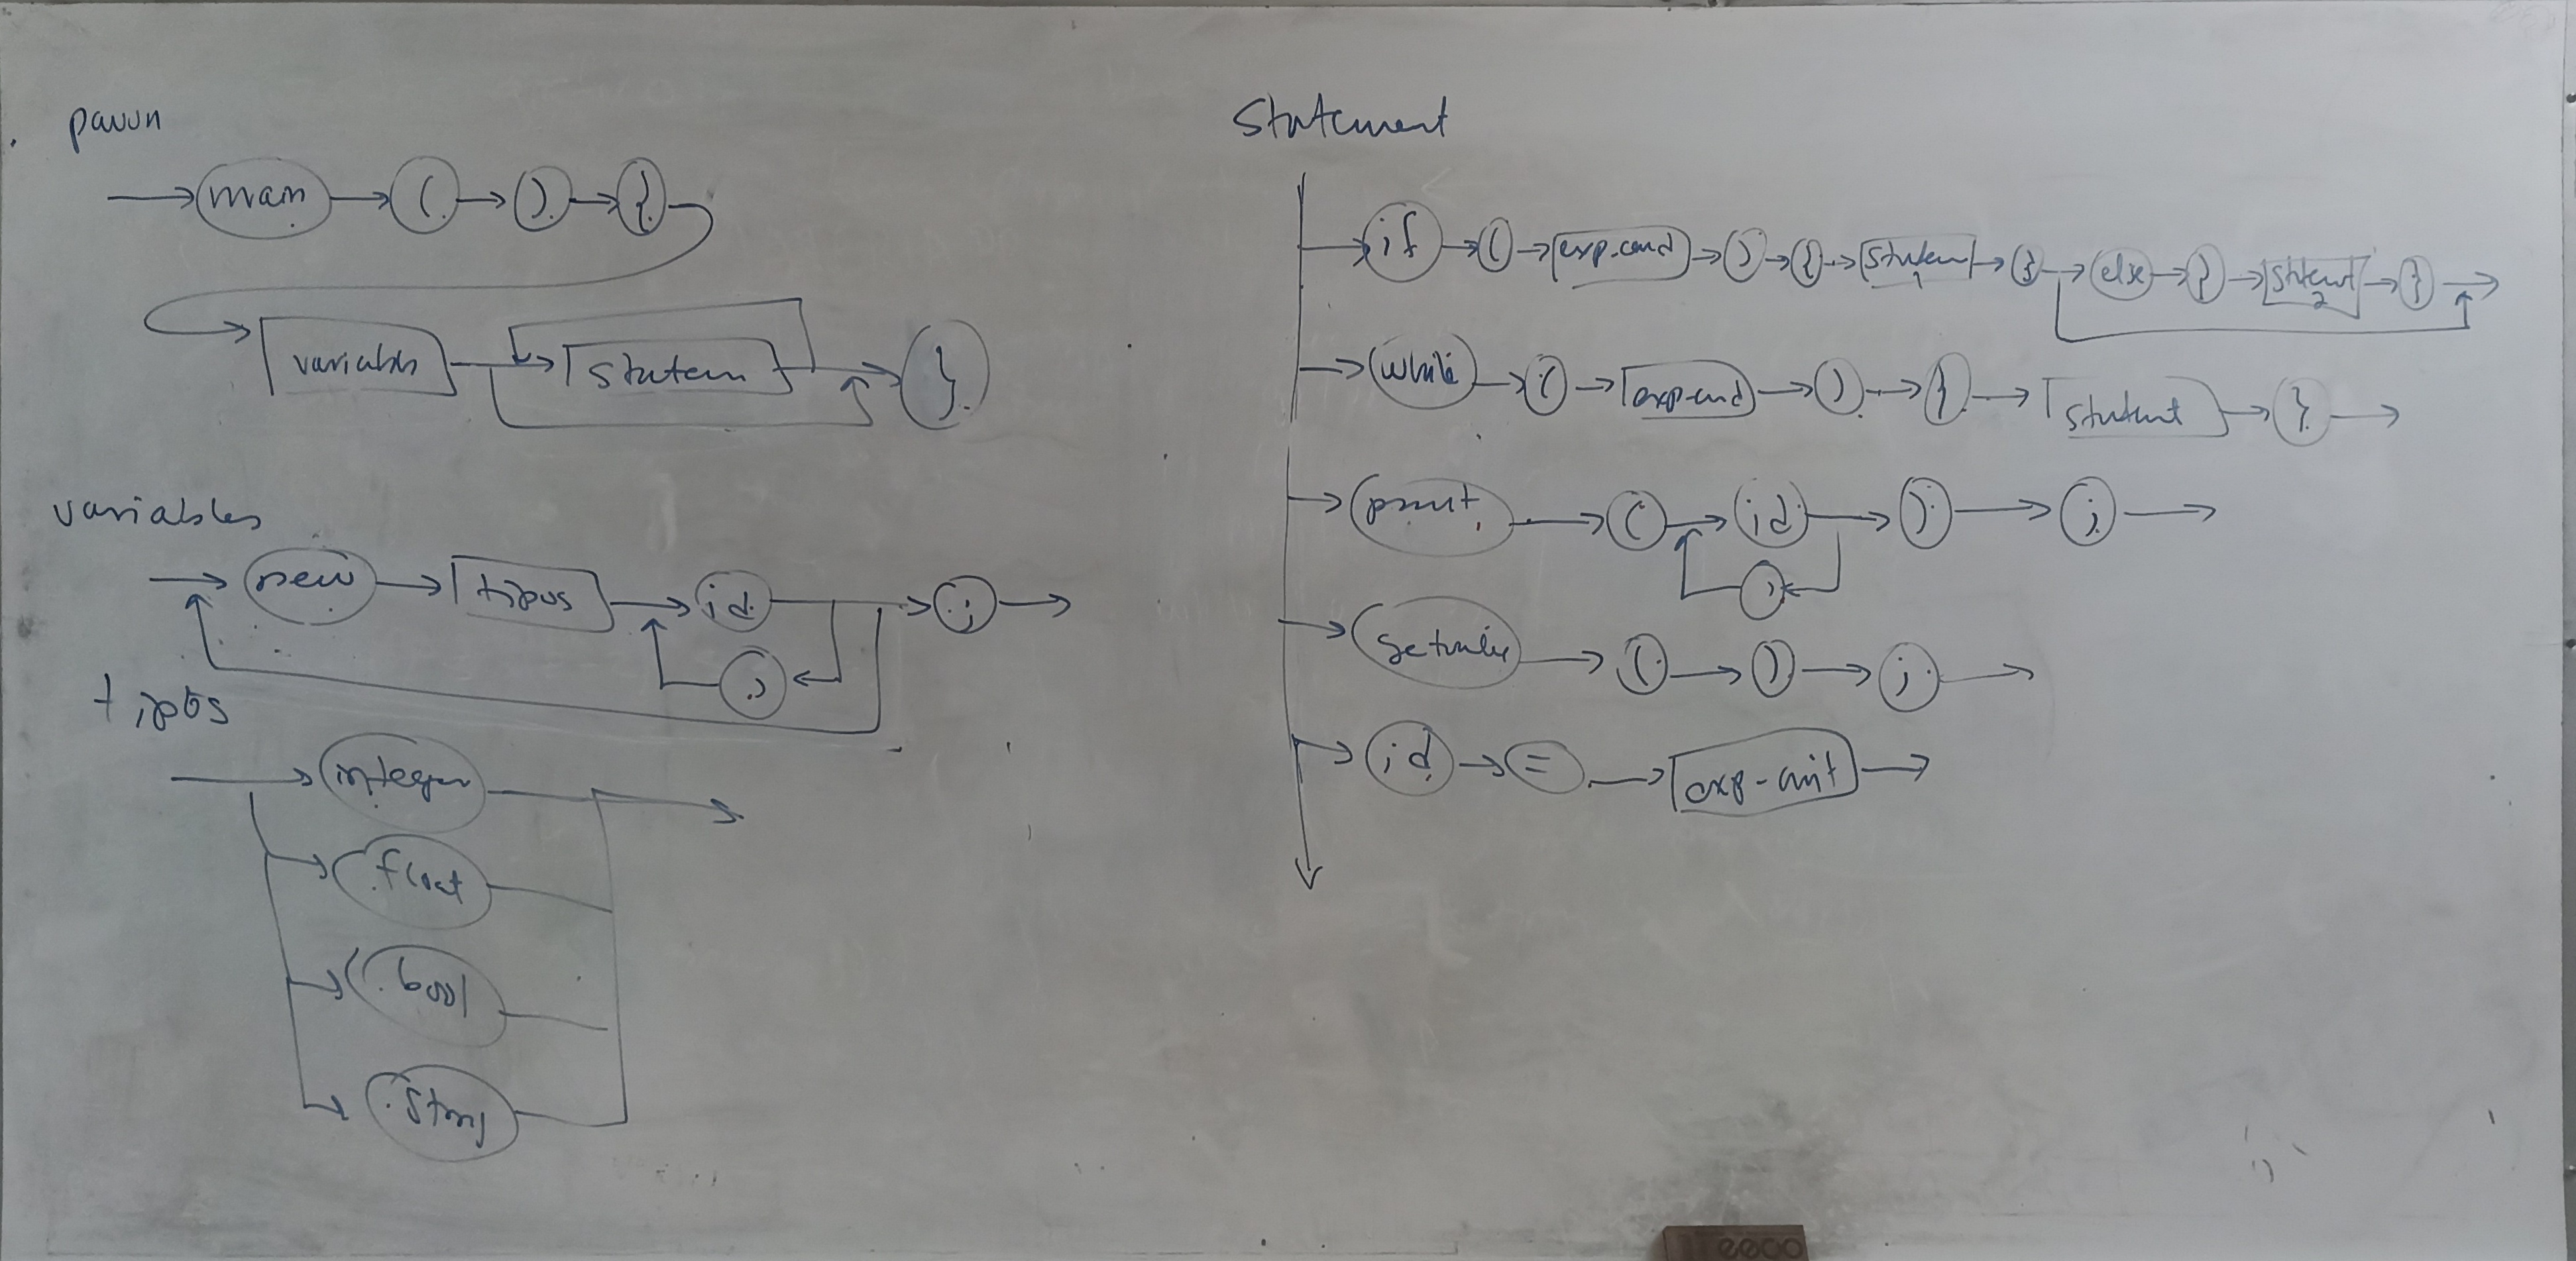 pawn
main ( ) {
variables statem }
variables
new tipos id ;
,
tipos
integer
float
bool
string
Statement
if ( exp.cond ) { statem 1 } else { statemt 2 }
while ( exp-cond ) { statemt }
print ( id ) ;
,
( ) ;
id = exp-arit